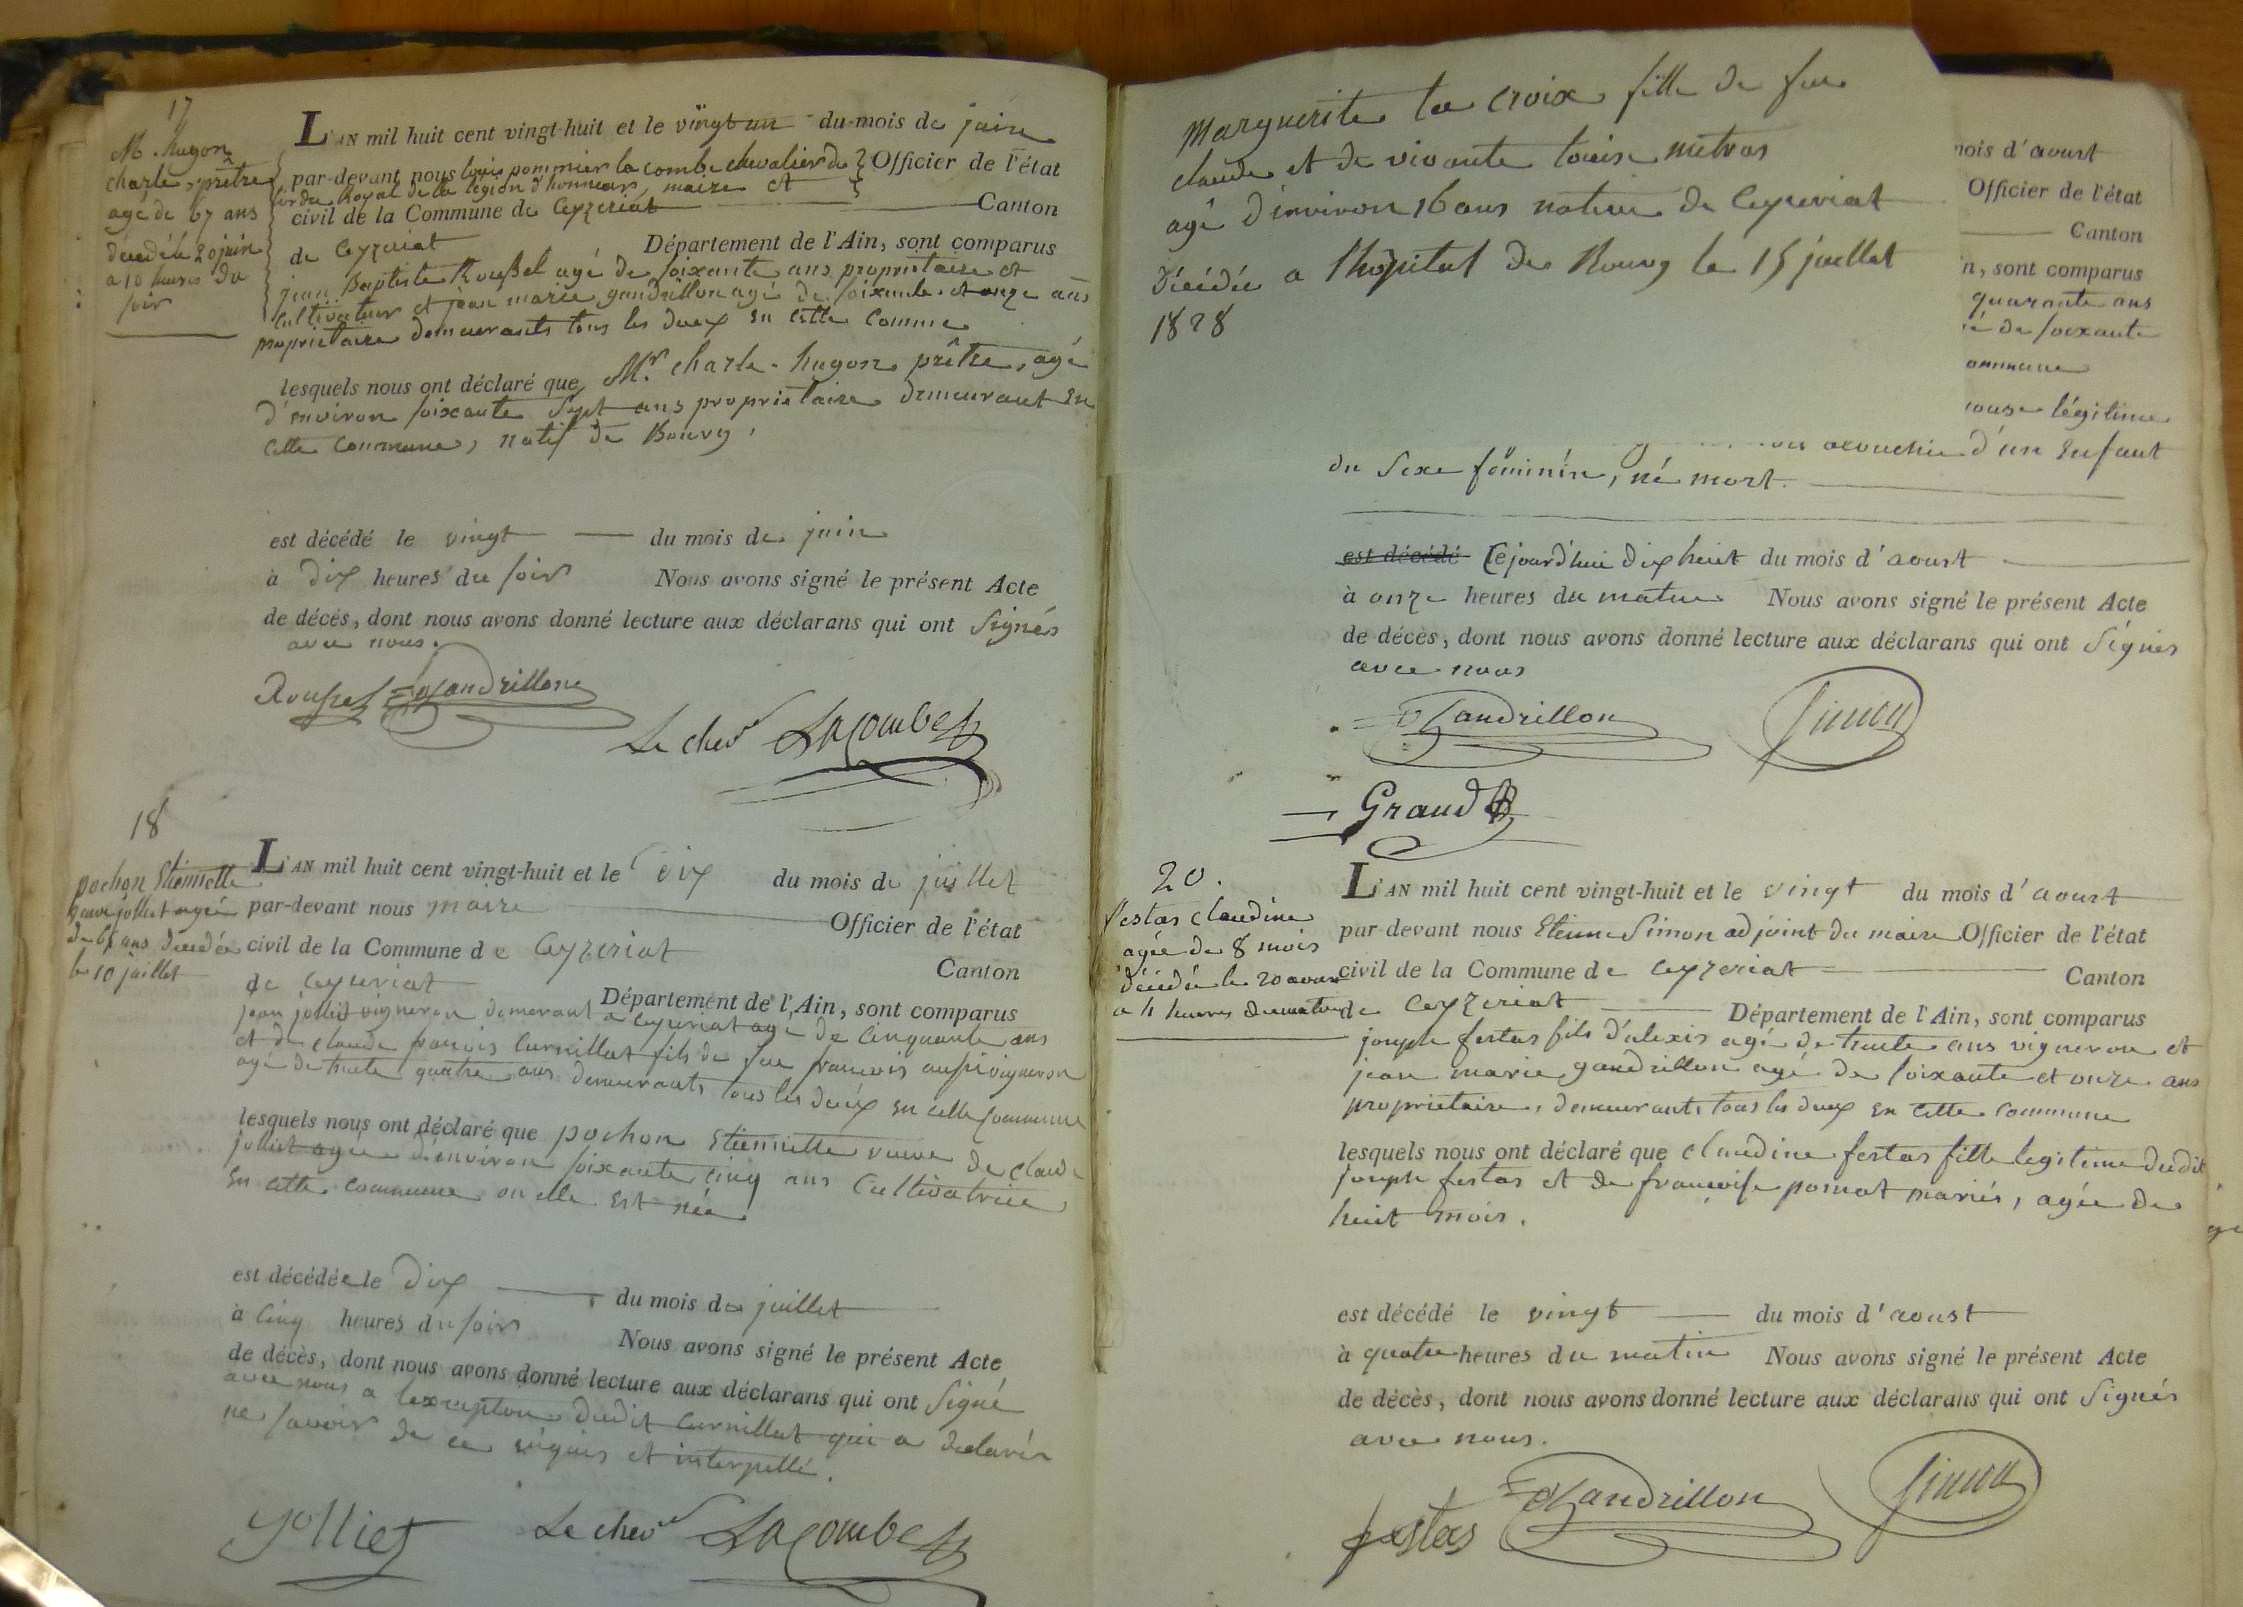 17
M. hugon
charle, prêtre
agé de 67 ans
décédé le 20 juin
a 10 heures du
soir
L'AN mil huit cent vingt-huit et le vingt un du mois de juin
par-devant nous louis pommier la combe chevalier de Officier de l'état
l'ordre Royal de la légion d'honneur, maire et
civil de la Commune de Ceyzeriat Canton
de Ceyzeriat Département de l'Ain, sont comparus
jean Baptiste Roussel agé de soixante ans proprietaire et
Cultivateur et jean marie gandrillon agé de soixante et onze ans
proprietaire demeurants tous les deux en cette Comme
lesquels nous ont déclaré que Mr. charle hugon prêtre, agé
d'environ soixante Sept ans proprietaire demeurant En
cette Commune, natif de Bourg,
est décédé le vingt du mois de juin
à dix heures du soir Nous avons signé le présent Acte
de décès, dont nous avons donné lecture aux déclarans qui ont Signés
avec nous.
Roussel Gandrillon
Le chev Lacombe
18
pochon Etiennette
veuve jolliet agée
de 65 ans décédée
le 10 juillet
L'AN mil huit cent vingt-huit et le dix du mois de juillet
par-devant nous maire Officier de l'état
civil de la Commune de Ceyzeriat Canton
de Ceyzeriat Département de l'Ain, sont comparus
jean jolliet vigneron demeurant a Ceyzeriat agé de Cinquante ans
et de claude françois Curnillat fils de feu francois aussi vigneron
agé de trente quatre ans demeurants tous les deux en cette Commune
lesquels nous ont déclaré que pochon Etiennette veuve de claude
jolliet agée d'environ soixante cinq ans Cultivatrice
En cette commune ou elle Est née
est décédée le dix du mois de juillet
à Cinq heures du soir Nous avons signé le présent Acte
de décès, dont nous avons donné lecture aux déclarans qui ont Signé
avec nous a l'exception dudit Curnillat qui a declarés
ne savoir de ce requis et interpellé.
Jolliet Le chev Lacombe
Marguerite la croix fille de feu
claude et de vivante louise mitras
agé d'environ 16 ans native de Ceyzeriat
Décédée a l'hopital de Bourg le 15 juillet
1828
mois d'aoust
Officier de l'état
Canton
n, sont comparus
quarante ans
é de soixante
ommune
ouse légitime
acouchée d'un Enfant
du Sexe féminin, né mort.
est décédé Cejourd'hui dix huit du mois d'aoust
à onze heures du matin Nous avons signé le présent Acte
de décès, dont nous avons donné lecture aux déclarans qui ont Signés
avec nous
Gandrillon Simon
Grand
20.
festas claudine
agée de 8 mois
décédée le 20 aoust
a 4 heures du matin
L'AN mil huit cent vingt-huit et le vingt du mois d'aoust
par-devant nous Etienne Simon adjoint du maire Officier de l'état
civil de la Commune de Ceyzeriat Canton
de Ceyzeriat Département de l'Ain, sont comparus
joseph festas fils d'alexis agé de trente ans vigneron et
jean marie gandrillon agé de soixante et onze ans
proprietaire, demeurants tous les deux en cette commune
lesquels nous ont déclaré que claudine festas fille legitime dudit
joseph festas et de francoise pomat mariés, agée de
huit mois.
est décédé le vingt du mois d'aoust
à quatre heures du matin Nous avons signé le présent Acte
de décès, dont nous avons donné lecture aux déclarans qui ont Signés
avec nous.
festas Gandrillon Simon